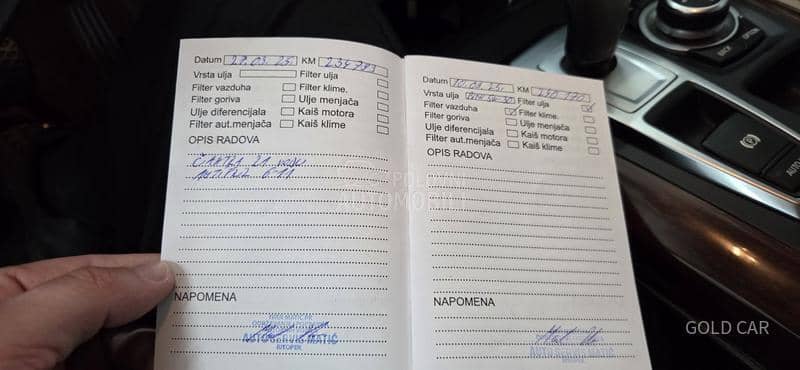 Datum 29.03.25. KM 234793
Vrsta ulja Filter ulja
Filter vazduha Filter klime.
Filter goriva Ulje menjača
Ulje diferencijala Kaiš motora
Filter aut.menjača Kaiš klime
OPIS RADOVA
ZA VODU
NAPOMENA
AUTOSERVIS MATIĆ
RITOPEK
Datum KM
Vrsta ulja Filter ulja
Filter vazduha Filter klime.
Filter goriva Ulje menjača
Ulje diferencijala Kaiš motora
Filter aut.menjača Kaiš klime
OPIS RADOVA
NAPOMENA
AUTOSERVIS MATIĆ
RITOPEK
POLOVNI
AUTOMOBILI
BACK
OPTION
AUTO
GOLD CAR